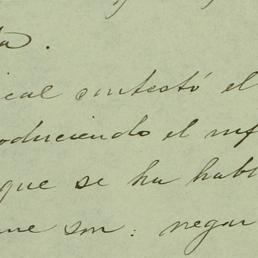 ta.
ical contestó el
oduciendo el inf
que se ha habl
ue son: negar